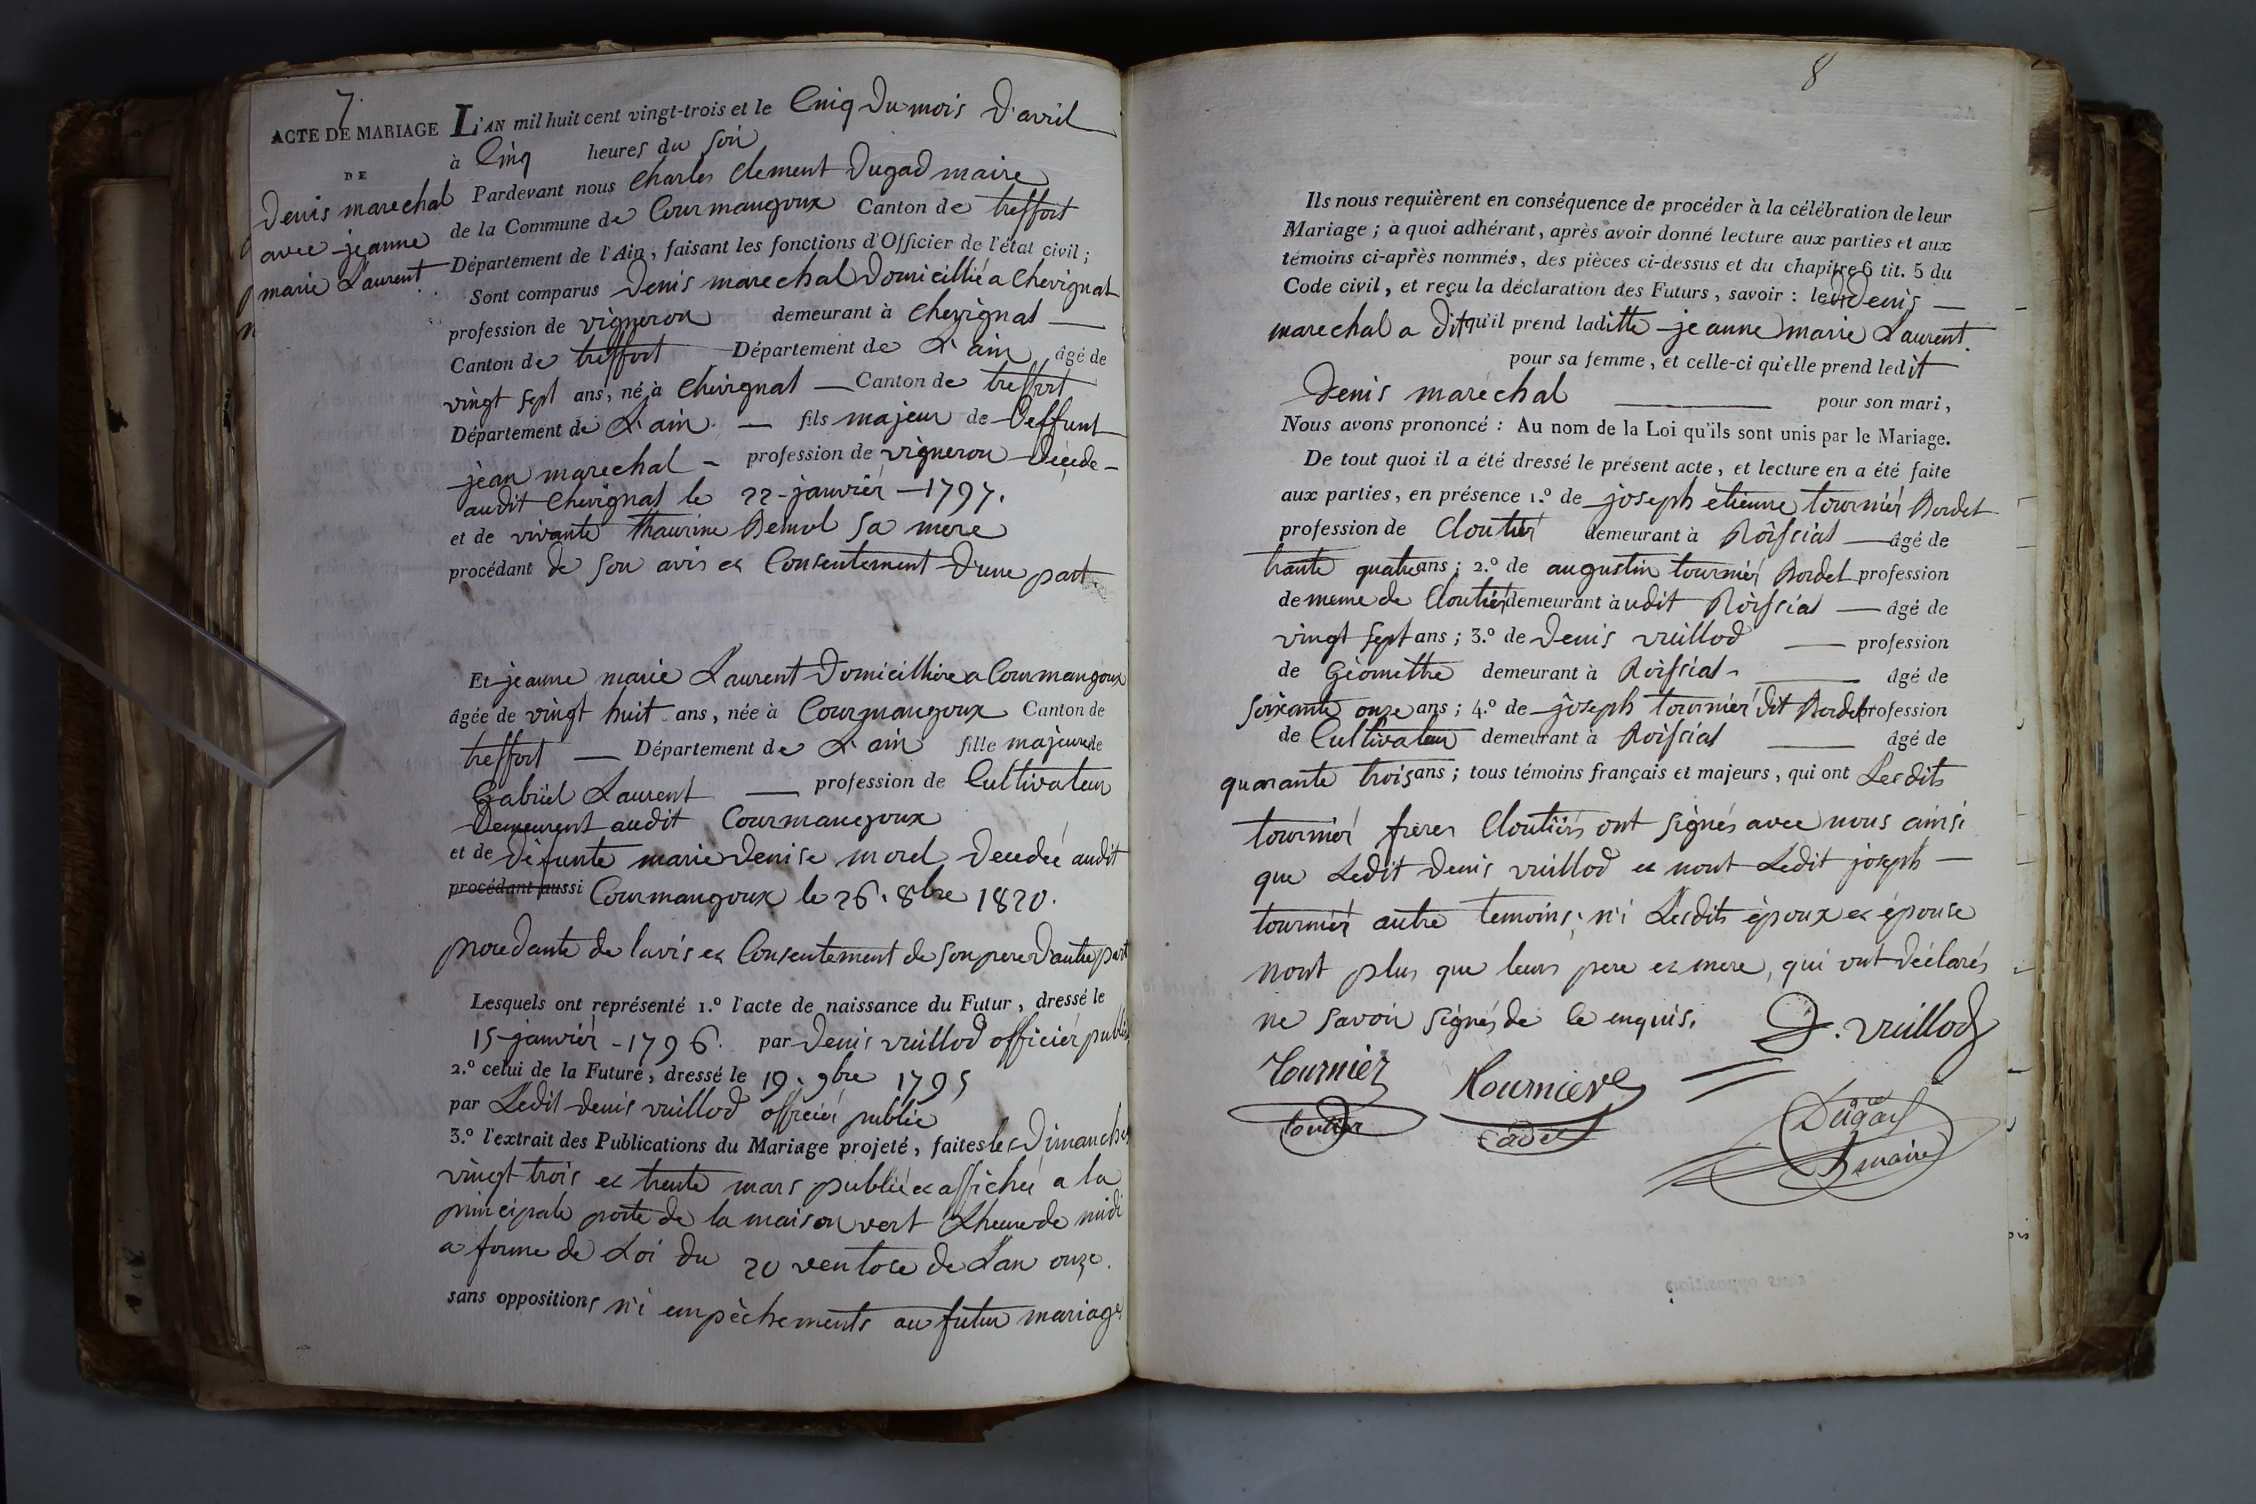 7.
ACTE DE MARIAGE
DE
Denis marechal
avec jeanne
marie Laurent.
L'AN mil huit cent vingt-trois et le Cinq du mois D'avril
à Cinq heures du soir
Pardevant nous Charles Clement Dugad maire
de la Commune de Courmangoux Canton de treffort
Département de l'Ain, faisant les fonctions d'Officier de l'état civil;
Sont comparus Denis marechal Domicillié a Chevignat
profession de vigneron demeurant à Chevignat
Canton de treffort Département de L'ain âgé de
vingt sept ans, né à Chevignat Canton de treffort
Département de L'ain fils majeur de Deffunt
jean marechal profession de vigneron Décédé
audit Chevignat le 22 janvier 1797.
et de vivante sa mere
procédant de son avis et Consentement D'une part
Et jeanne marie Laurent Domicillière a Courmangoux
âgée de vingt huit ans, née à Courmangoux Canton de
treffort Département de L'ain fille majeure de
Gabriel Laurent profession de Cultivateur
Demeurent audit Courmangoux
et de défunte marie Denise morel Decedée audit
procédant aussi Courmangoux le 26. 8bre 1820.
procedante de lavis et Consentement de son pere D'autre part
Lesquels ont représenté 1.º l'acte de naissance du Futur, dressé le
15 janvier 1796. par Denis vuillod officier public
2.º celui de la Future, dressé le 19. 9bre 1795
par Ledit Denis vuillod officier public
3.º l'extrait des Publications du Mariage projeté, faites les Dimanches
vingt trois et trente mars publiée et affichée a la
principale porte de la maison vert L'heure de midi
a forme de Loi du 20 ventose de L'an onze.
sans oppositions n'i empêchements au futur mariage
8
Ils nous requièrent en conséquence de procéder à la célébration de leur
Mariage; à quoi adhérant, après avoir donné lecture aux parties et aux
témoins ci-après nommés, des pièces ci-dessus et du chapitre 6 tit. 5 du
Code civil, et reçu la déclaration des Futurs, savoir: ledit Denis
marechal a dit qu'il prend laditte jeanne marie Laurent
pour sa femme, et celle-ci qu'elle prend ledit
Denis maréchal pour son mari,
Nous avons prononcé: Au nom de la Loi qu'ils sont unis par le Mariage.
De tout quoi il a été dressé le présent acte, et lecture en a été faite
aux parties, en présence 1.º de joseph étienne tournier Bordet
profession de Cloutier demeurant à Roissiat âgé de
trante quatre ans; 2.º de augustin tournier Bordet profession
de meme de Cloutier demeurant audit Roissiat âgé de
vingt sept ans; 3.º de Denis vuillod profession
de Géomettre demeurant à Roissiat âgé de
soixante onze ans; 4.º de joseph tournier dit Bordet profession
de Cultivateur demeurant à Roissiat âgé de
quarante trois ans; tous témoins français et majeurs, qui ont Lesdits
tournier freres Cloutiers ont signés avec nous ainsi
que Ledit Denis vuillod et nont Ledit joseph
tournier autre temoins; n'i Lesdits époux et épouse
nont plus que leurs pere et mere, qui ont déclarés
ne savoir signés de ce enquis.
D. vuillod
Tournier
Tournier
cadet
Dugad
maire